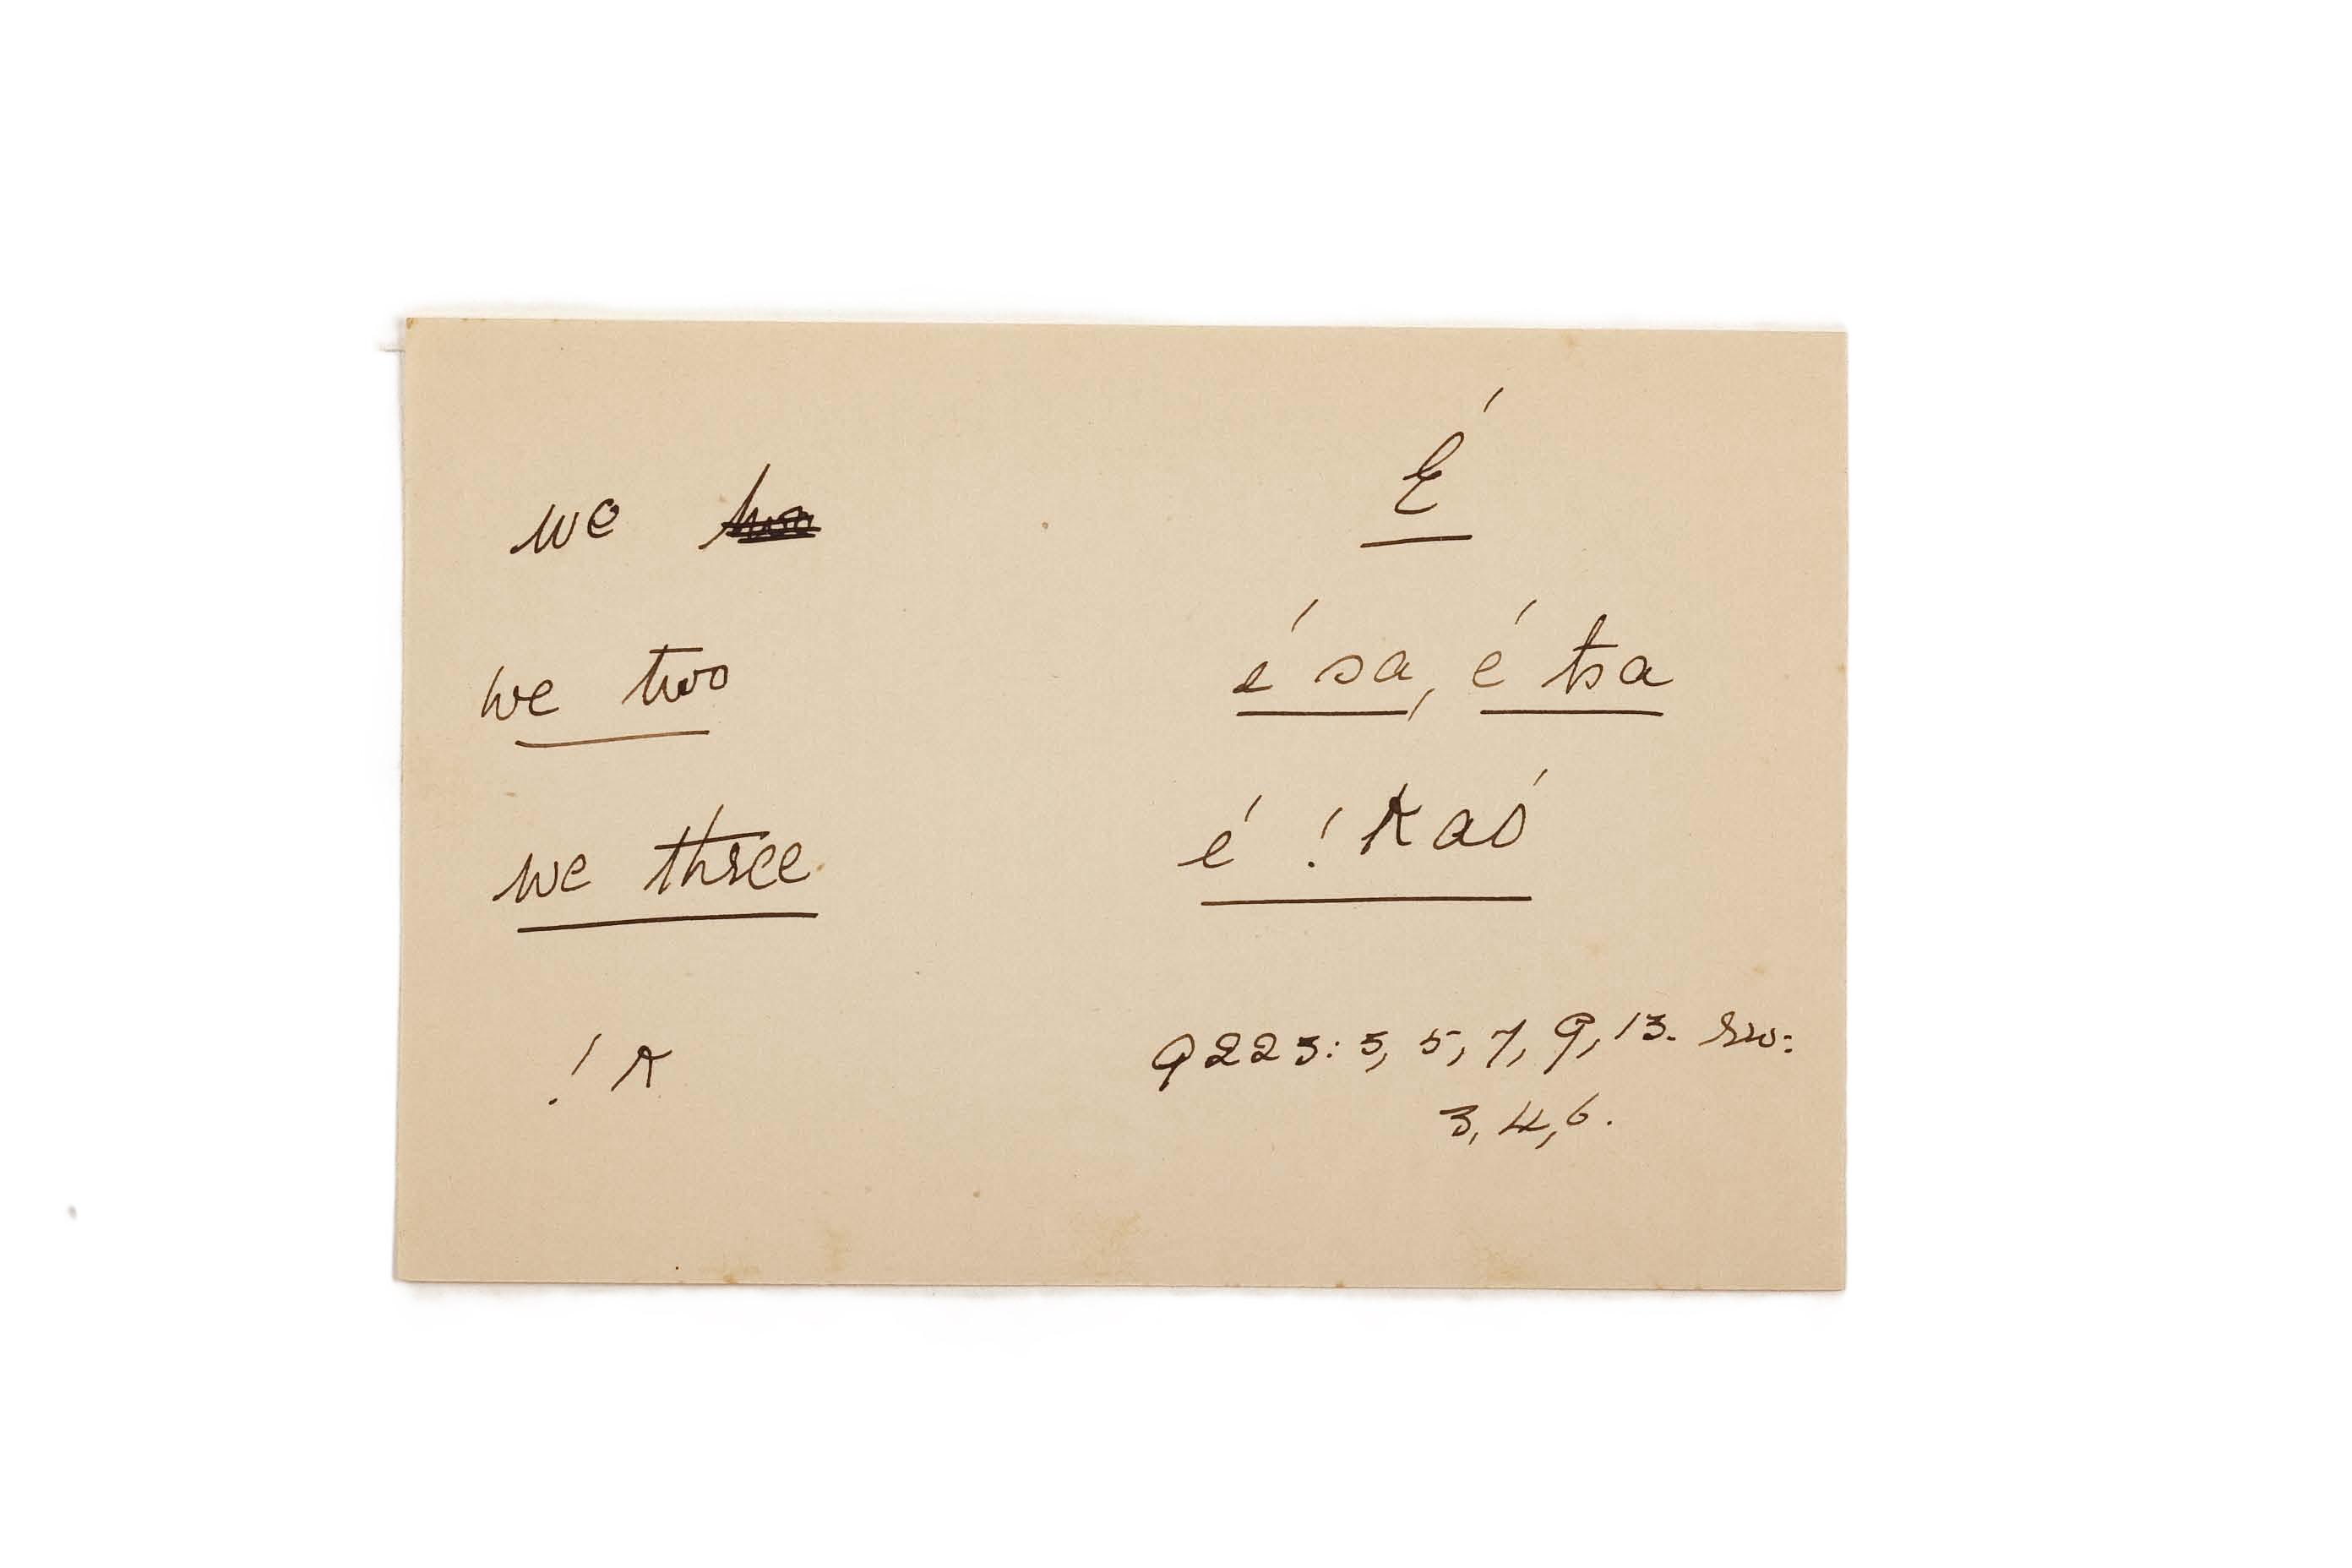 we É
we two é sa, é tsa
we three é !kaó
!k 9223: 3, 5, 7, 9, 13. rev:
3, 4, 6.